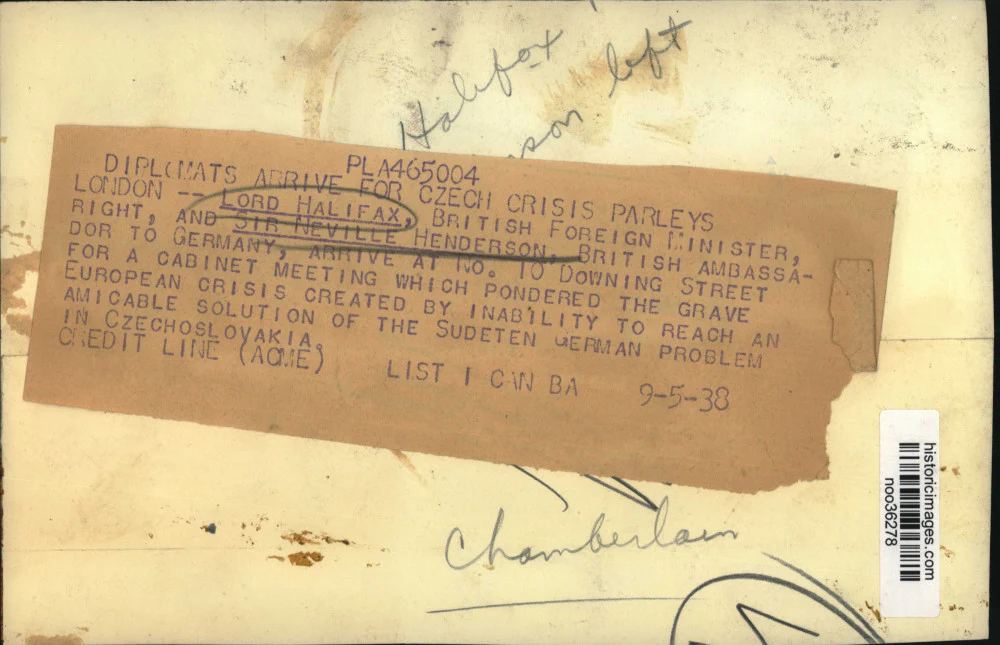 Halifax
son left
PLA465004
DIPLOMATS ARRIVE FOR CZECH CRISIS PARLEYS
LONDON -- LORD HALIFAX, BRITISH FOREIGN MINISTER,
RIGHT, AND SIR NEVILLE HENDERSON, BRITISH AMBASSA-
DOR TO GERMANY, ARRIVE AT NO. 10 DOWNING STREET
FOR A CABINET MEETING WHICH PONDERED THE GRAVE
EUROPEAN CRISIS CREATED BY INABILITY TO REACH AN
AMICABLE SOLUTION OF THE SUDETEN GERMAN PROBLEM
IN CZECHOSLOVAKIA.
CREDIT LINE (ACME) LIST I CAN BA 9-5-38
Chamberlain
historicimages.com
noo36278